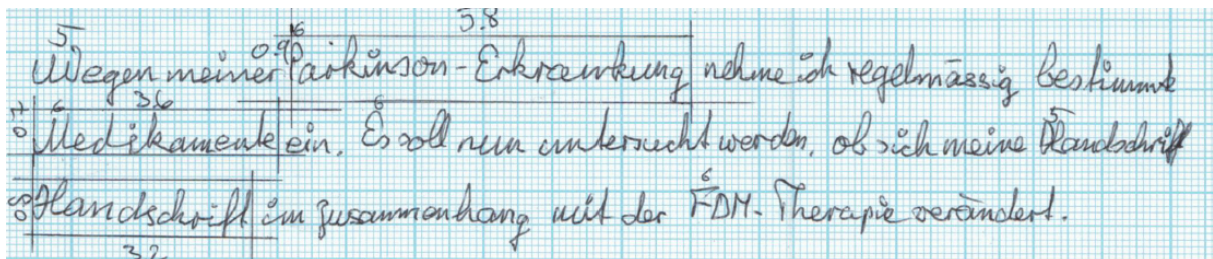 5 16 5.8
Wegen meiner 0.9 Parkinson-Erkrankung nehme ich regelmässig bestimmte
0.7 6 3.6 6 5
Medikamente ein. Es soll nun untersucht werden, ob sich meine Handschrift
0.8 6
Handschrift im Zusammenhang mit der FDM-Therapie verändert.
3.2